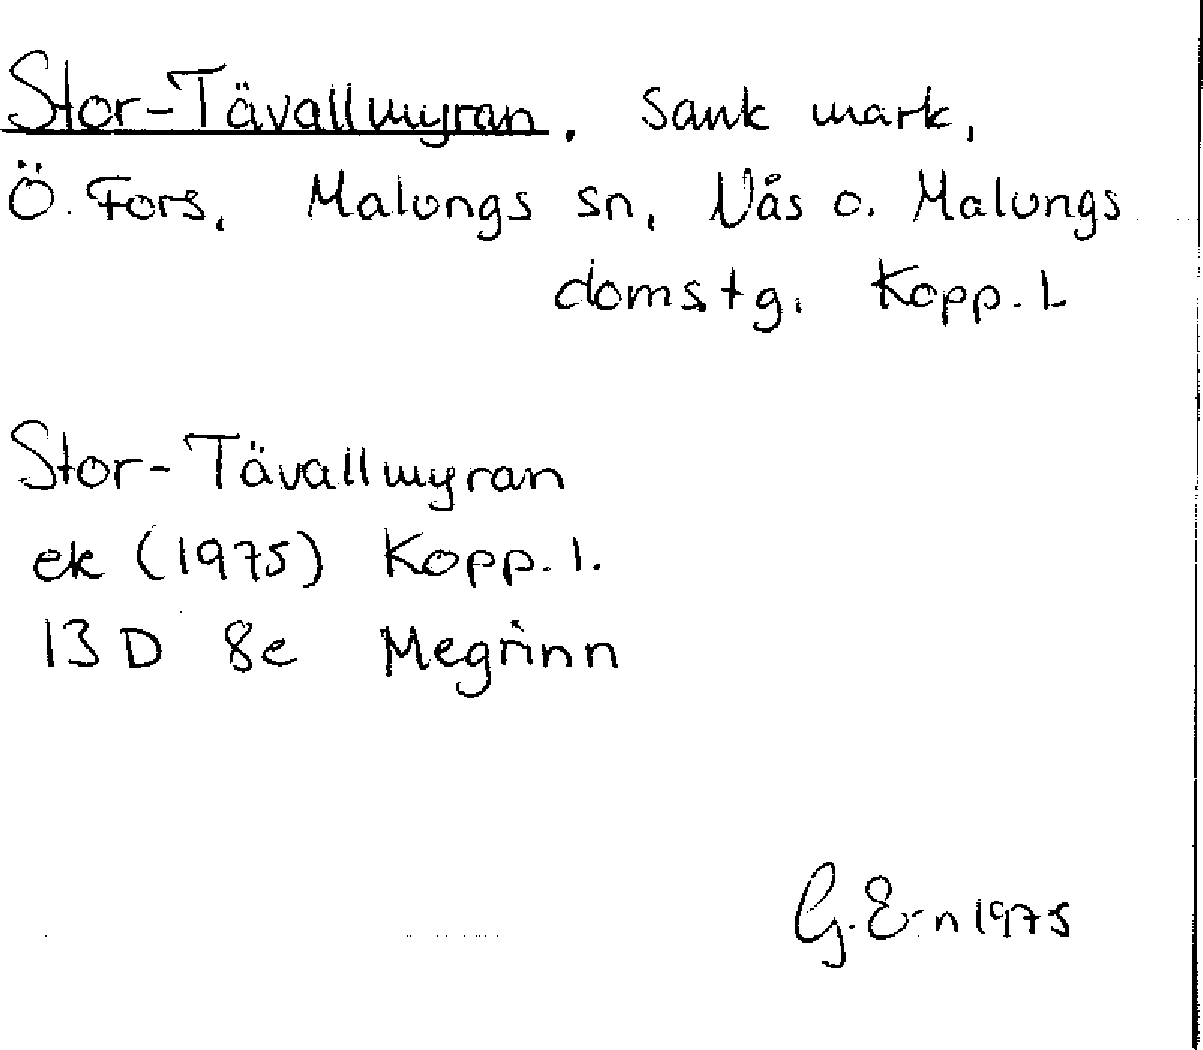 Stor-Tävallmyran. Sank mark,
Ö. Fors, Malungs sn, Nås o. Malungs
domstg. Kopp. L
Stor-Tävallmyran
ek (1975) Kopp. l.
13 D 8e Megrinn
G. E-n 1975